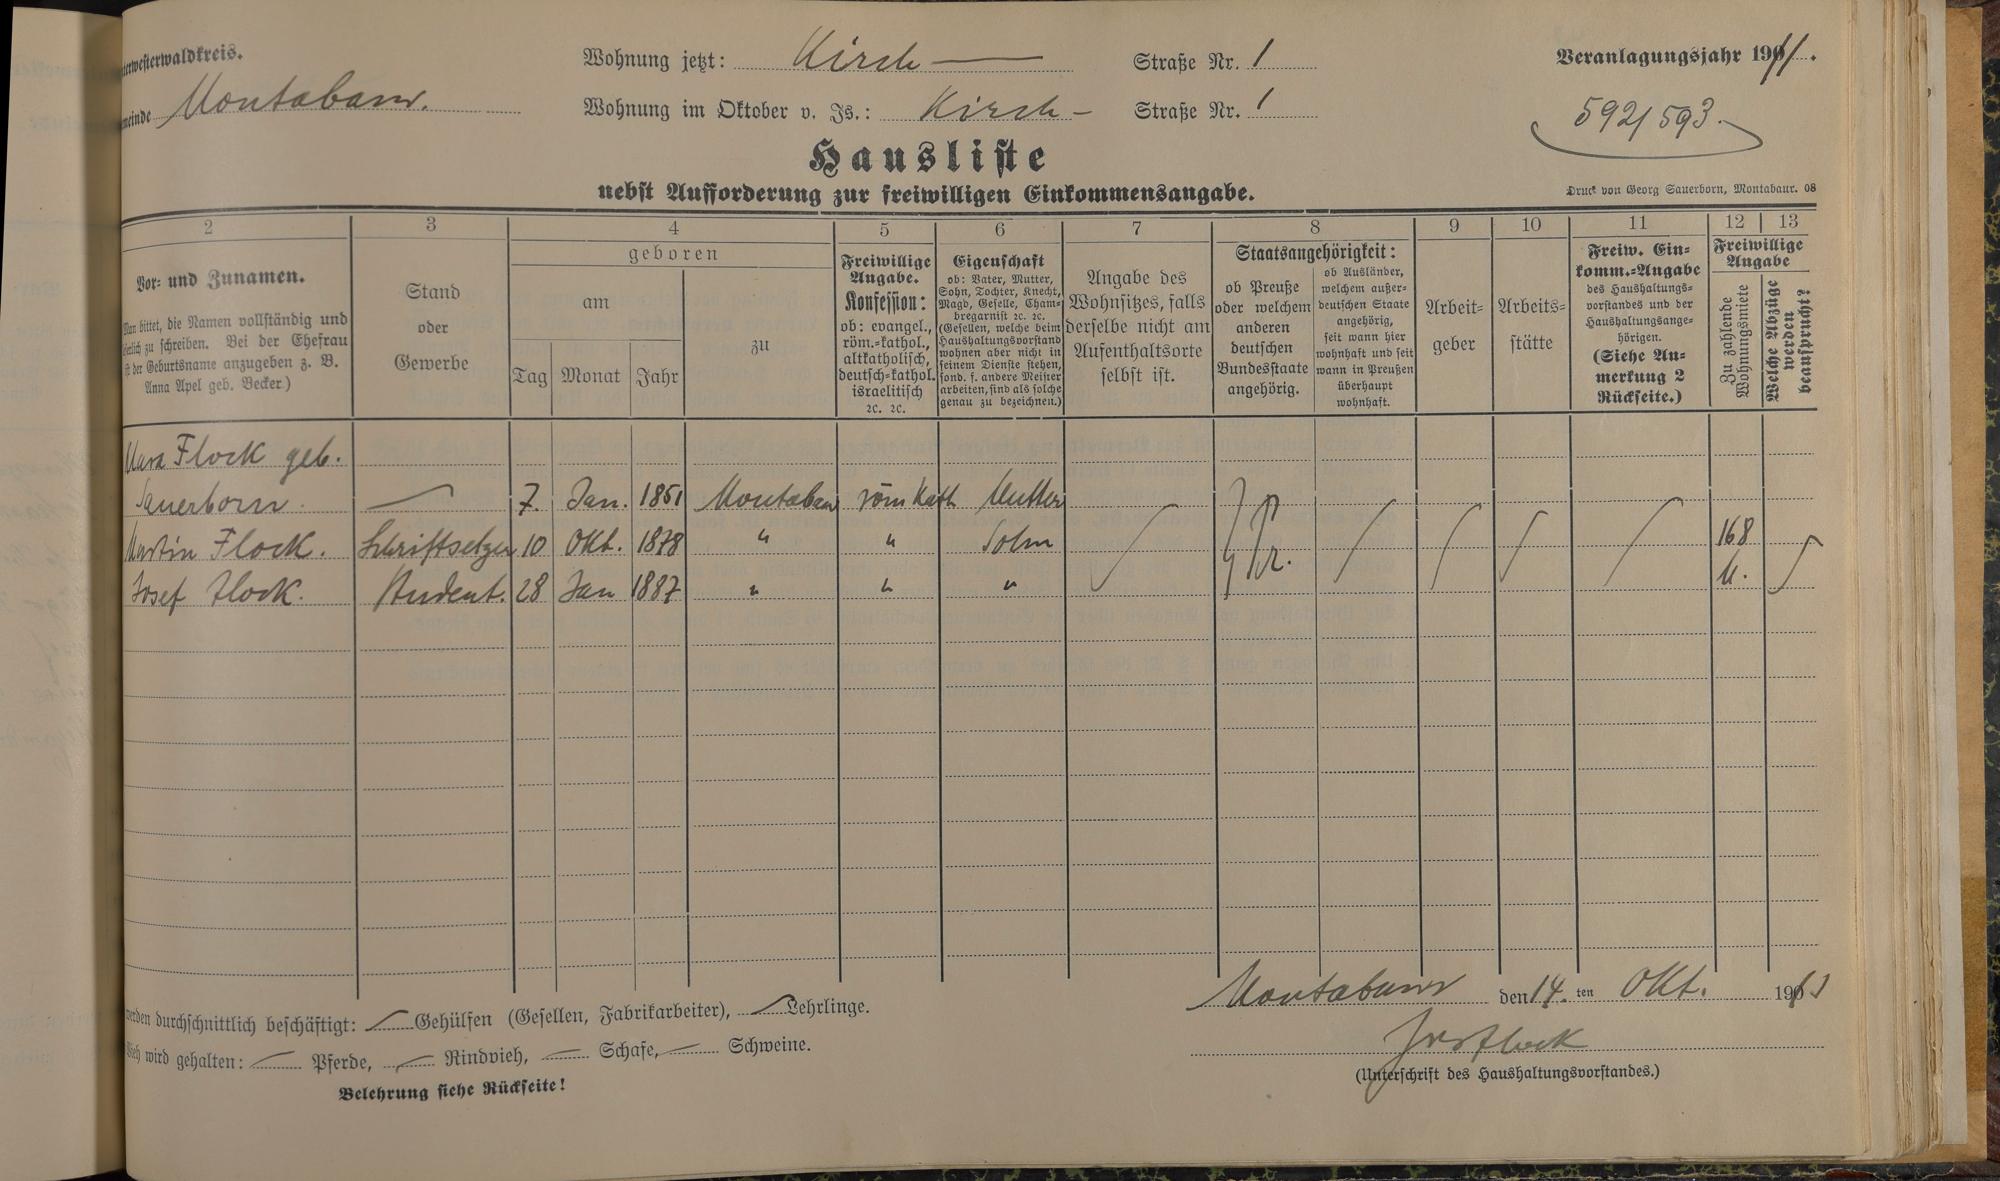 terwesterwaldkreis.
Wohnung jetzt: Kirch — Straße Nr. 1
Veranlagungsjahr 1911.
meinde Montabaur.
Wohnung im Oktober v. Js.: Kirch- Straße Nr. 1
592/593.
Hausliste
nebst Aufforderung zur freiwilligen Einkommensangabe.
Druck von Georg Sauerborn, Montabaur. 08
2 3 4 5 6 7 8 9 10 11 12 13
Vor- und Zunamen.
Man bittet, die Namen vollständig und
zu schreiben. Bei der Ehefrau
ist der Geburtsname anzugeben z. B.
Anna Apel geb. Becker.)
Stand
oder
Gewerbe
geboren
am
Tag Monat Jahr
zu
Freiwillige
Angabe.
Konfession:
ob: evangel.,
röm.-kathol.,
altkatholisch,
deutsch-kathol.
israelitisch
2c. 2c.
Eigenschaft
ob: Vater, Mutter,
Sohn, Tochter, Knecht,
Magd, Geselle, Cham-
bregarnist 2c. 2c.
(Gesellen, welche beim
Haushaltungsvorstand
wohnen aber nicht in
seinem Dienste stehen,
sond. f. andere Meister
arbeiten, sind als solche
genau zu bezeichnen.)
Angabe des
Wohnsitzes, falls
derselbe nicht am
Aufenthaltsorte
selbst ist.
Staatsangehörigkeit:
ob Preuße
oder welchem
anderen
deutschen
Bundesstaate
angehörig.
ob Ausländer,
welchem außer-
deutschen Staate
angehörig,
seit wann hier
wohnhaft und seit
wann in Preußen
überhaupt
wohnhaft.
Arbeit-
geber
Arbeits-
stätte
Freiw. Ein-
komm.-Angabe
des Haushaltungs-
vorstandes und der
Haushaltungsange-
hörigen.
(Siehe An-
merkung 2
Rückseite.)
Freiwillige
Angabe
Zu zahlende
Wohnungsmiete
Welche Abzüge
werden
beansprucht?
Flock geb.
Sauerborn. — 7. Jan. 1851 Montabaur röm Kath Mutter
Martin Flock. Schriftsetzer 10 Okt. 1878 " " Sohn Pr. 168
Josef Flock. Student. 28 Jan 1887 " " " M.
werden durchschnittlich beschäftigt: — Gehülfen (Gesellen, Fabrikarbeiter), — Lehrlinge.
Vieh wird gehalten: — Pferde, — Rindvieh, — Schafe, — Schweine.
Belehrung siehe Rückseite!
Montabaur den 14. ten Okt. 19
Jos Flock
(Unterschrift des Haushaltungsvorstandes.)